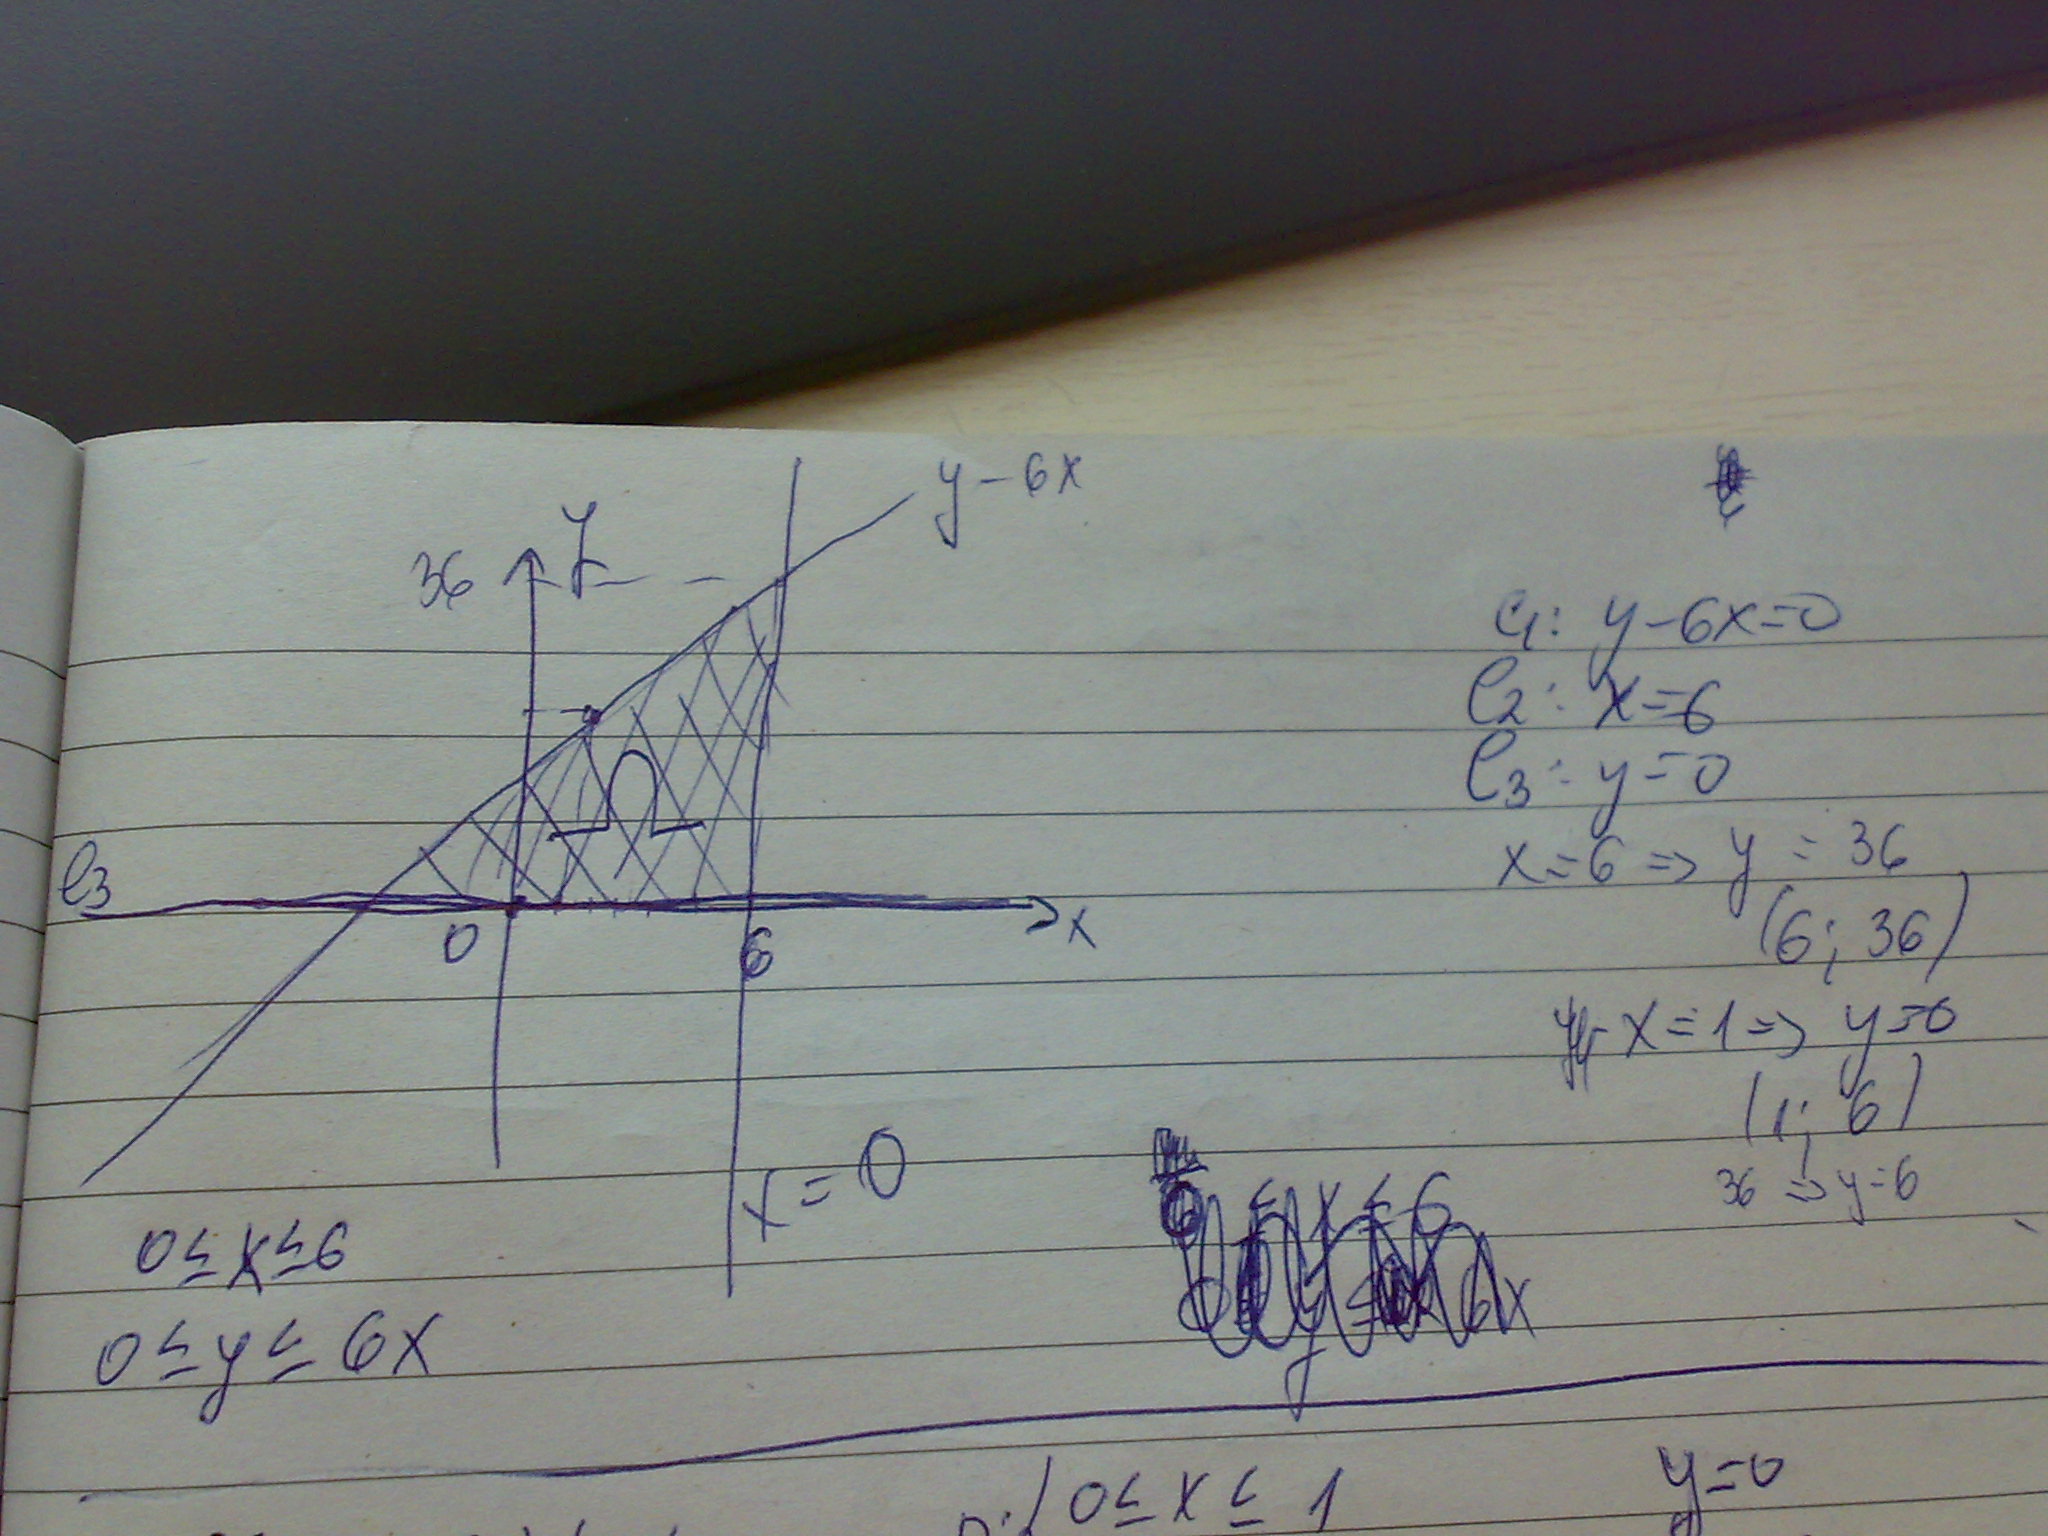 y-6x
36 y
ℓ3
0 6 x
x=0
0≤x≤6
0≤y≤6x
ℓ1: y-6x=0
ℓ2: x=6
ℓ3: y=0
x=6 => y=36
(6; 36)
x=1 => y=6
(1; 6)
36 => y=6
Ω
≤ x ≤ 6
6x
y
0≤x≤1
y=0